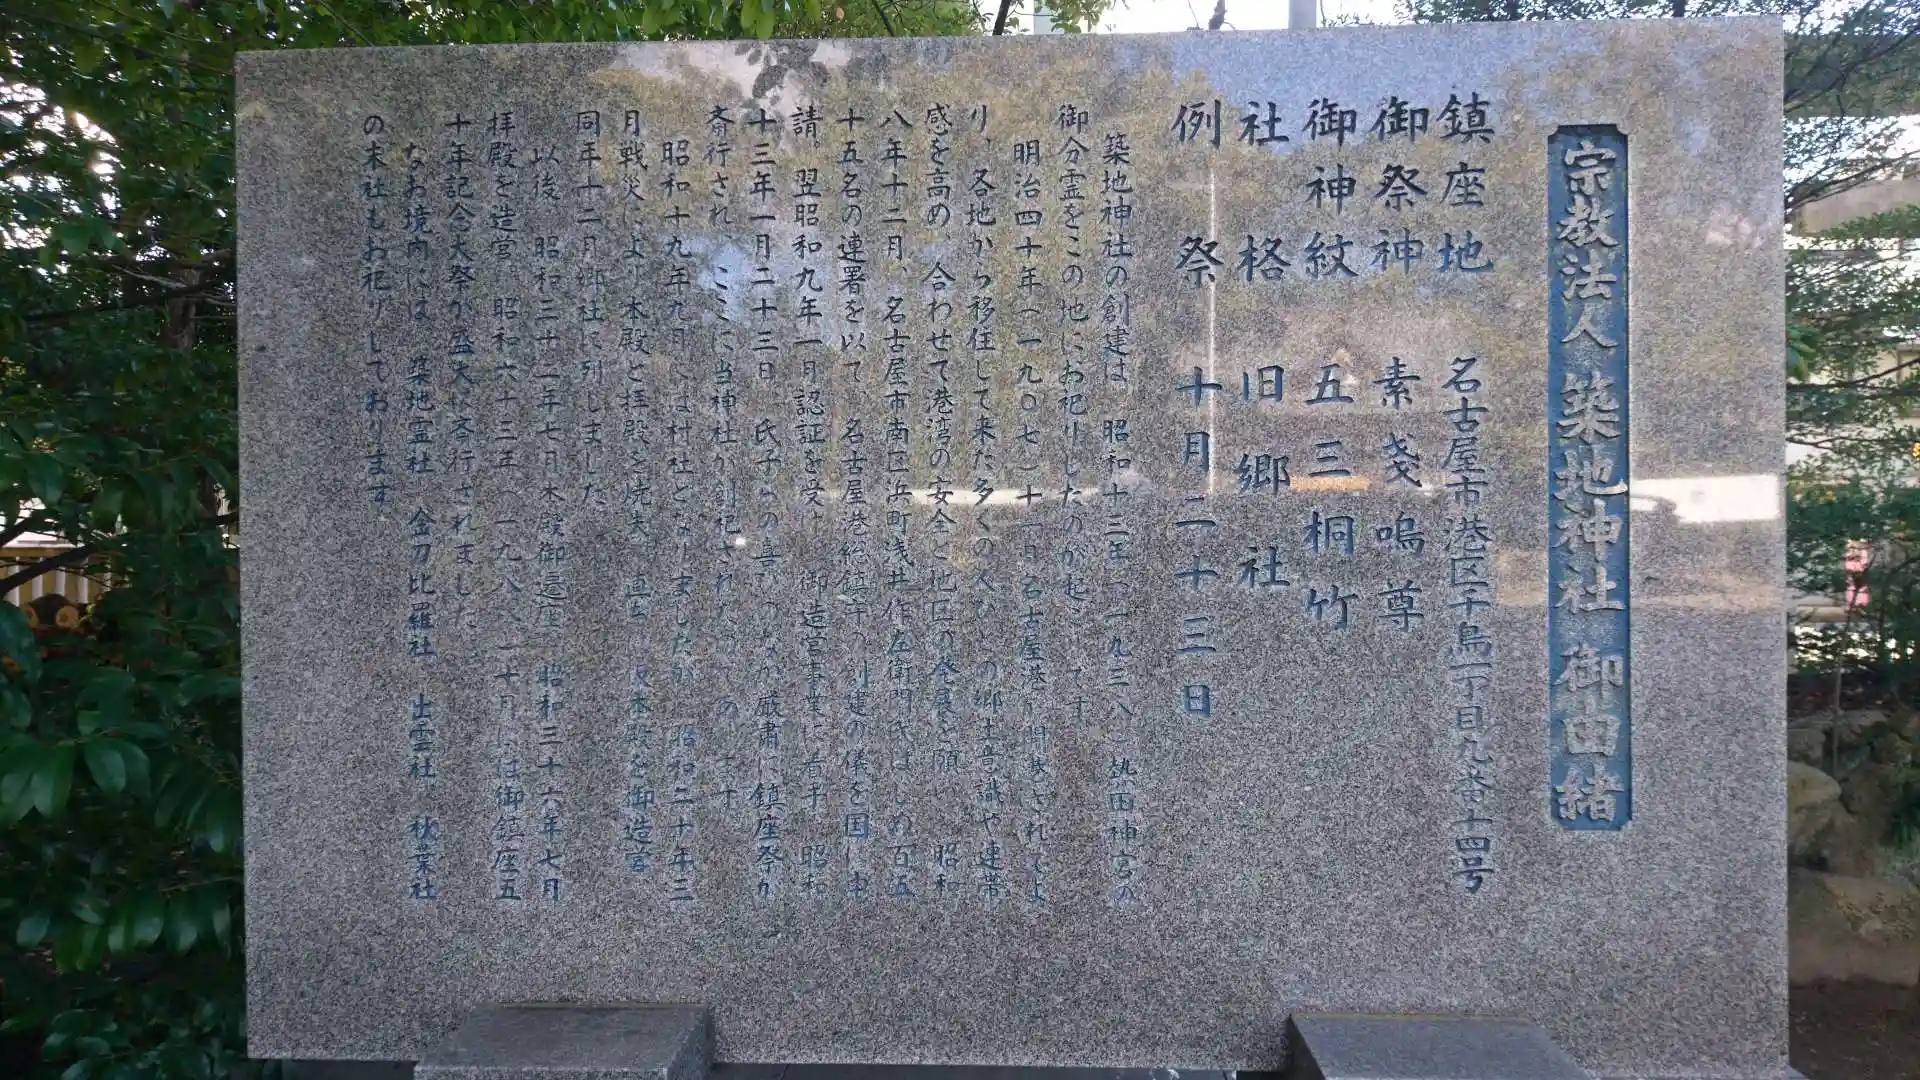 宗教法人 築地神社 御由緒
鎮座地 名古屋市港区千鳥一丁目九番十四号
御祭神 素戔嗚尊
御神紋 五三桐竹
社格 旧郷社
例祭 十月二十三日
築地神社の創建は、昭和十三年(一九三八)熱田神宮の
御分霊をこの地にお祀りしたのが起こりです。
明治四十年(一九〇七)十一月名古屋港が開港されてよ
り、各地から移住して来た多くの人びとの郷土意識や連帯
感を高め、合わせて港湾の安全と地区の発展を願い、昭和
八年十二月、名古屋市南区浜町浅井作左衛門氏はじめ百五
十五名の連署を以て、名古屋港総鎮守の創建の儀を国に申
請。翌昭和九年一月認証を受け、御造営事業に着手、昭和
十三年一月二十三日、氏子の喜びのなか厳粛に鎮座祭が
斎行され、ここに当神社が創祀されたのであります。
昭和十九年九月には村社となりましたが、昭和二十年三
月戦災により本殿と拝殿を焼失、直ちに仮本殿を御造営
同年十二月郷社に列しました。
以後、昭和三十一年七月本殿御遷座、昭和三十六年七月
拝殿を造営。昭和六十三年(一九八八)十月には御鎮座五
十年記念大祭が盛大に斎行されました。
なお境内には、築地霊社、金刀比羅社、出雲社、秋葉社
の末社もお祀りしております。